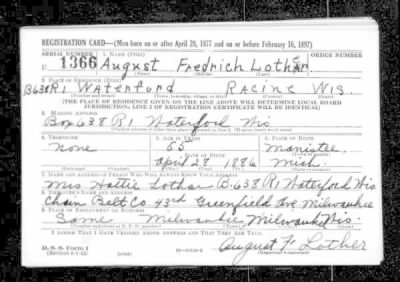 REGISTRATION CARD—(Men born on or after April 28, 1877 and on or before February 16, 1897)
SERIAL NUMBER 1. NAME (Print) ORDER NUMBER
U 1366 August Fredrich Lothar
(First) (Middle) (Last)
2. PLACE OF RESIDENCE (Print)
B638 R1 Waterford Racine Wis.
(Number and street) (Town, township, village, or city) (County) (State)
[THE PLACE OF RESIDENCE GIVEN ON THE LINE ABOVE WILL DETERMINE LOCAL BOARD
JURISDICTION; LINE 2 OF REGISTRATION CERTIFICATE WILL BE IDENTICAL]
3. MAILING ADDRESS
Box 638 R1 Waterford Wis
4. TELEPHONE 5. AGE IN YEARS 6. PLACE OF BIRTH
none 55 Manistee
DATE OF BIRTH
April 28 1886 Mich.
7. NAME AND ADDRESS OF PERSON WHO WILL ALWAYS KNOW YOUR ADDRESS
Mrs Hattie Lothar B-638 R1 Waterford Wis
8. EMPLOYER'S NAME AND ADDRESS
Chain Belt Co 43rd Greenfield Ave Milwaukee
9. PLACE OF EMPLOYMENT OR BUSINESS
Same Milwaukee, Milwaukee Wis.
(Number and street or R. F. D. number) (Town) (County) (State)
I AFFIRM THAT I HAVE VERIFIED ABOVE ANSWERS AND THAT THEY ARE TRUE.
D. S. S. Form 1
August F. Lother